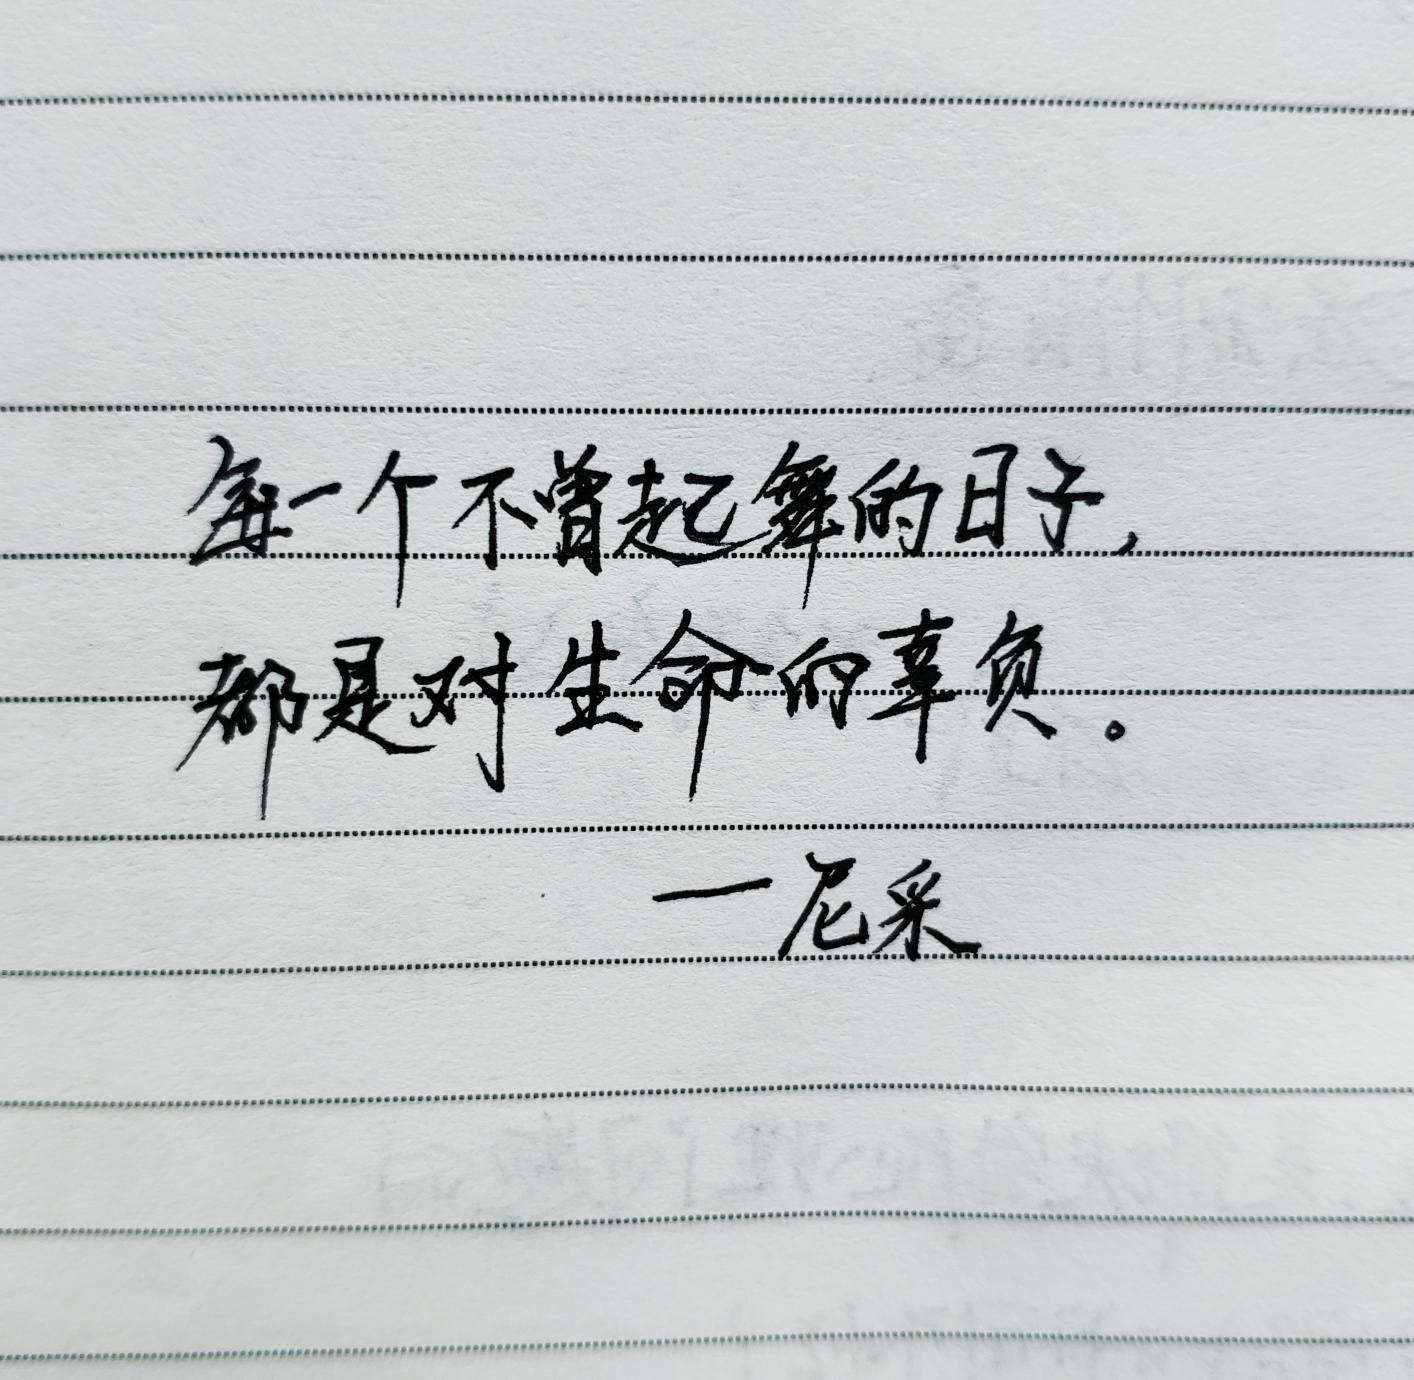 每一个不曾起舞的日子,
都是对生命的辜负。
一尼采